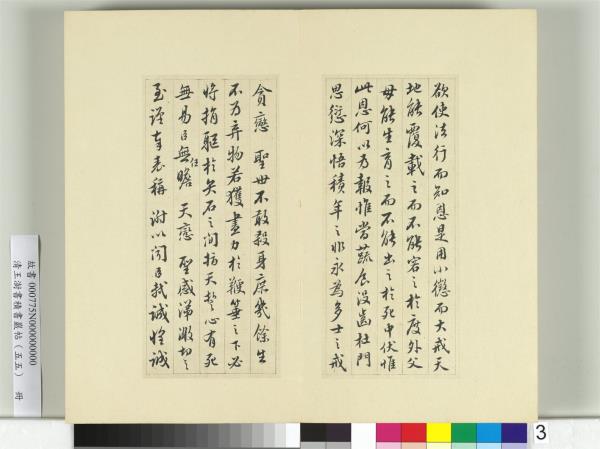 欲使法行而知恩是用小懲而大戒天
地能覆載之而不能容之於度外父
母能生育之而不能出之於死中伏惟
此恩何以為報惟當蔬食沒齒杜門
思愆深悟積年之非永為多士之戒
貪戀 聖世不敢殺身庶幾餘生
不為棄物若獲盡力於鞭箠之下必
將捐軀於矢石之間指天誓心有死
無易臣無任瞻 天戀 聖感涕激切之
至謹奉表稱 謝以聞臣軾誠惶誠
故書 000775N000000000
清王澍書積書巖帖(五五) 冊
3